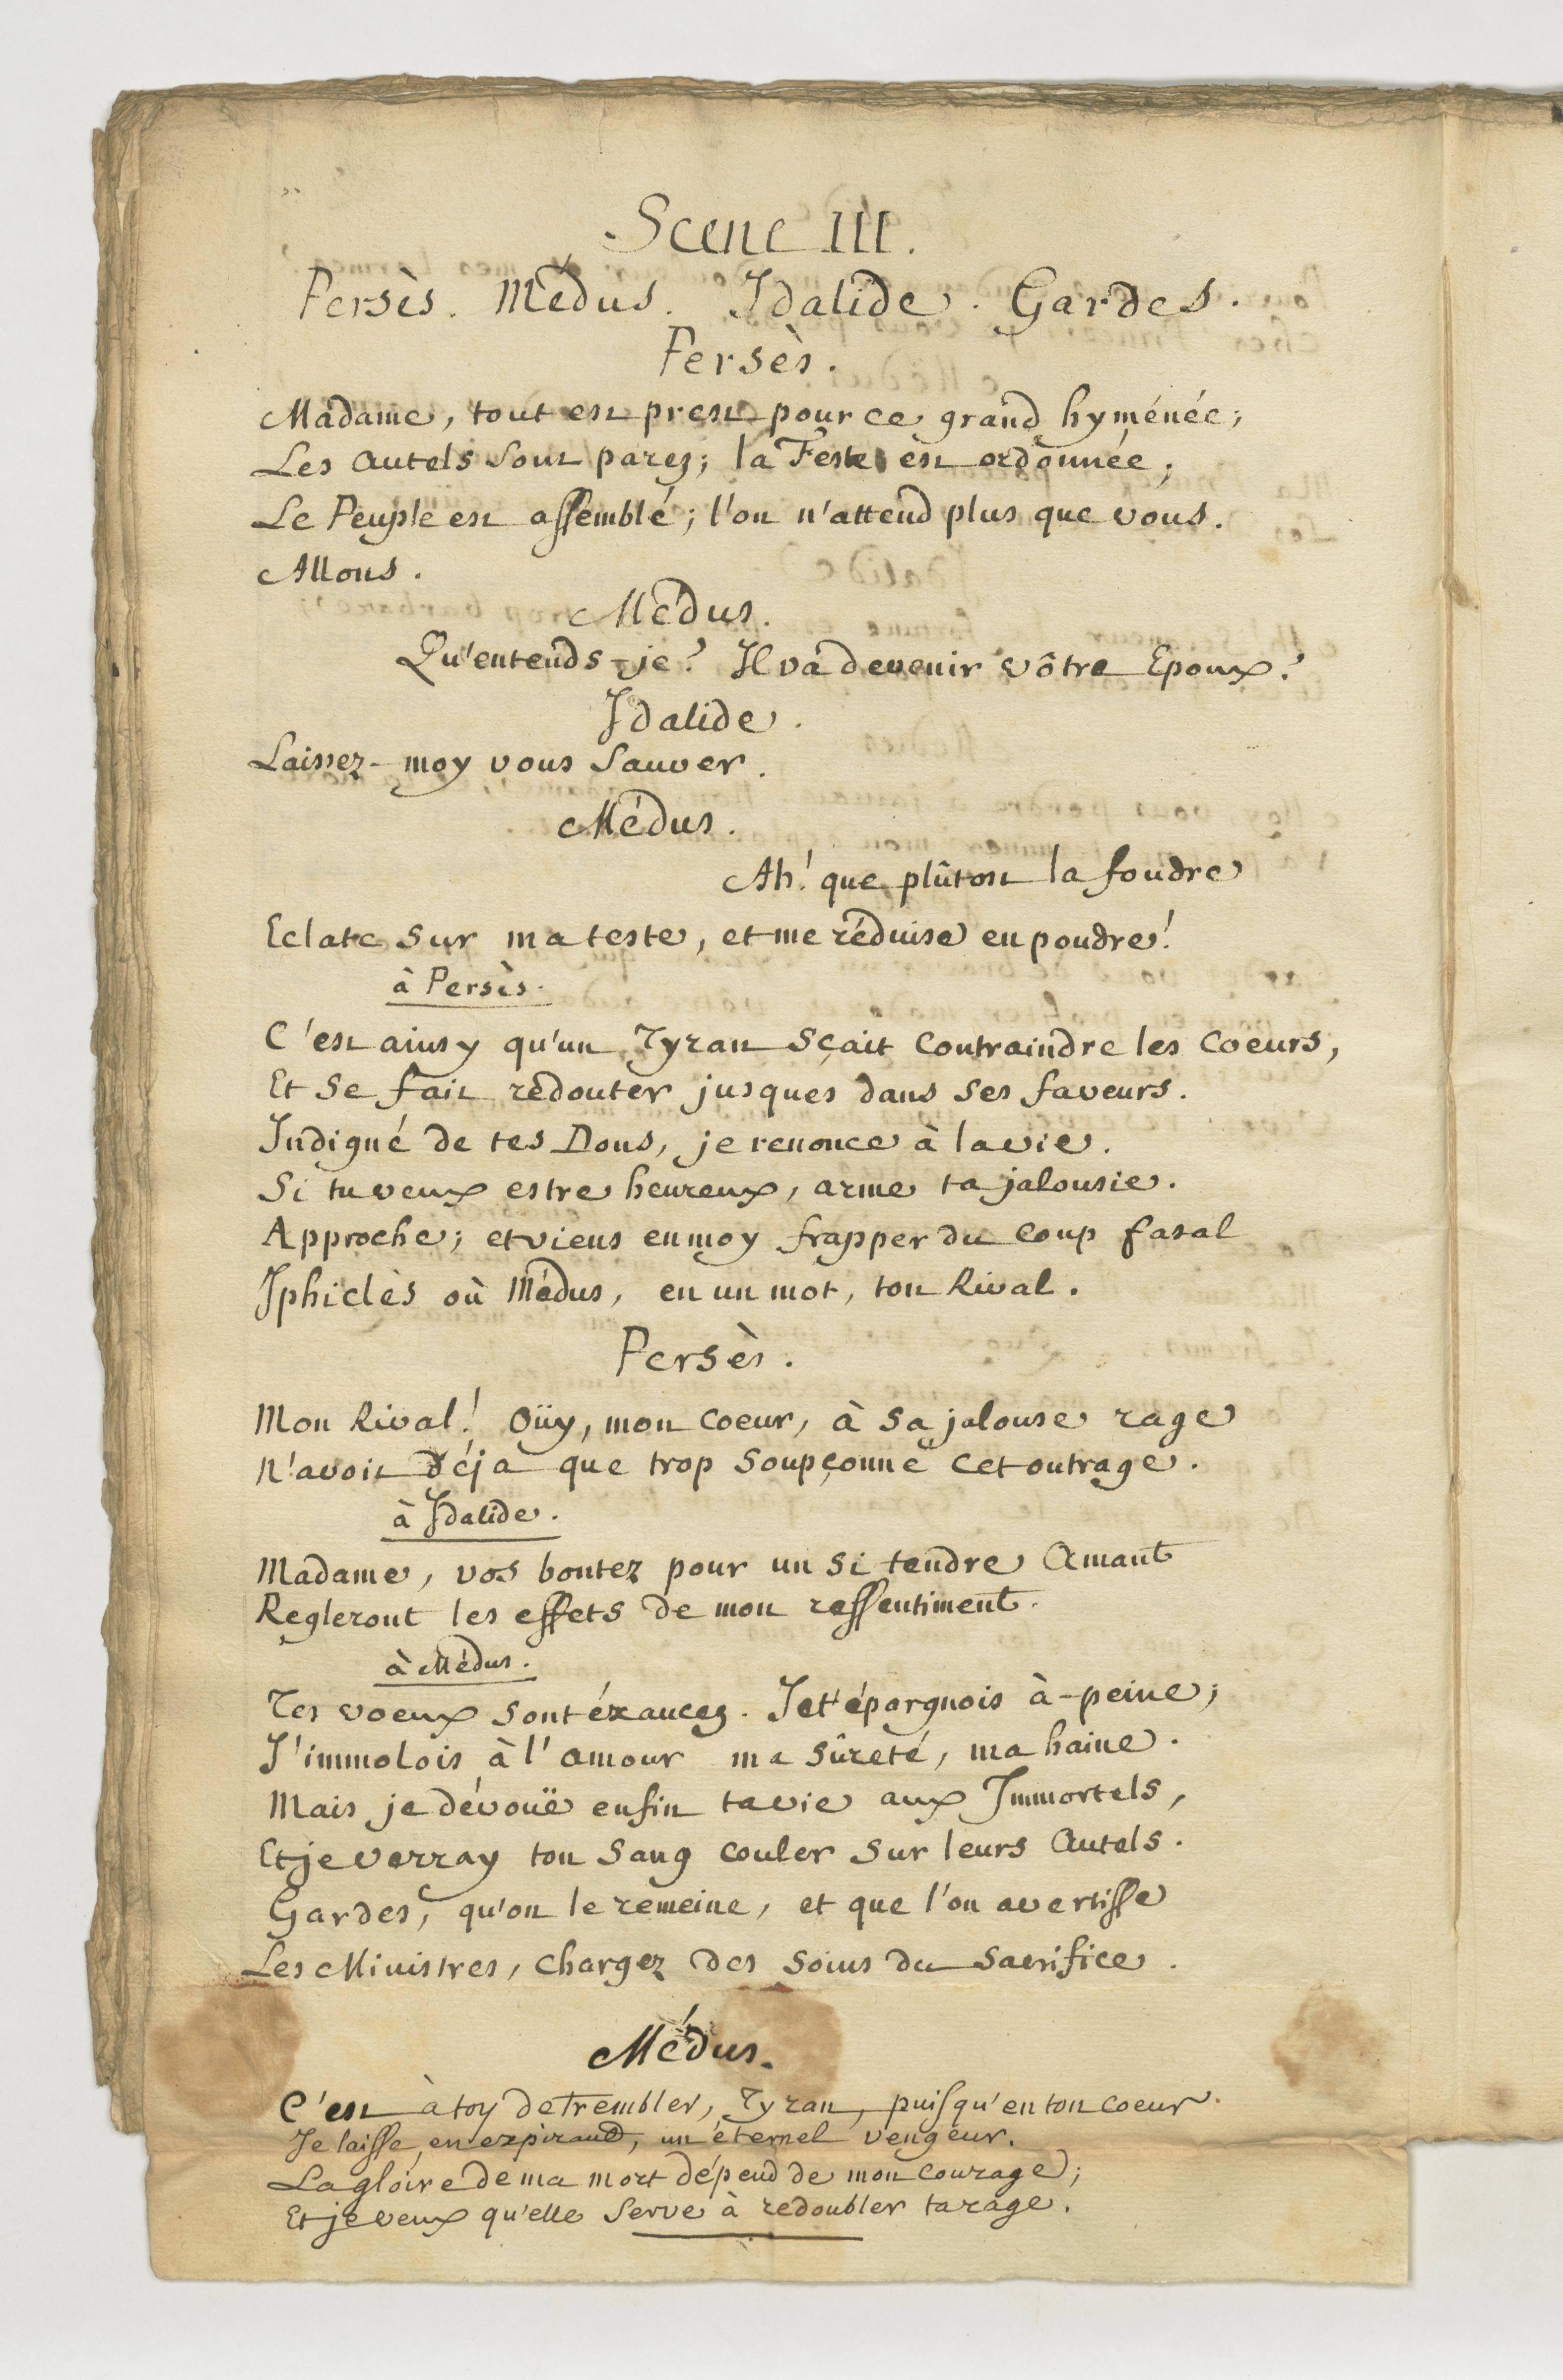 Scene III.
Persès. Médus. Idalide. Gardes.
Persès.
Madame, tout est prest pour ce grand hyménée;
Les autels sont parez; la Feste est ordonnée;
Le Peuple est assemblé; l'on n'attend plus que vous.
Allons.
Médus.
Qu'entends-je? Il va devenir vôtre Epoux?
Idalide.
Laissez-moy vous sauver.
Médus.
Ah! que plûtost la foudre
Eclate sur ma teste, et me réduise en poudre!
à Persès.
C'est ainsy qu'un Tyran sçait contraindre les coeurs,
Et se fait redouter jusques dans ses faveurs.
Indigné de tes Dons, je renonce à la vie.
Si tu veux estre heureux, arme ta jalousie.
Approche; et viens en moy frapper du coup fatal
Iphiclès où Médus, en un mot, ton Rival.
Persès.
Mon Rival! Oüy, mon coeur, à sa jalouse rage
N'avoit déja que trop soupçonné cet outrage.
à Idalide.
Madame, vos bontez pour un si tendre Amant
Regleront les effets de mon ressentiment.
à Médus.
Tes voeux sont éxaucez. Je t'épargnois à-peine;
J'immolois à l'amour ma sûreté, ma haine.
Mais je dévouë enfin ta vie aux Immortels,
Et je verray ton sang couler sur leurs Autels.
Gardes, qu'on le remeine, et que l'on avertisse
Les Ministres, chargez des soins du sacrifice.
Médus.
C'est à toy de trembler, Tyran, puisqu'en ton coeur
Je laisse, en expirant, un éternel vengeur.
La gloire de ma mort dépend de mon courage;
Et je veux qu'elle serve à redoubler ta rage.